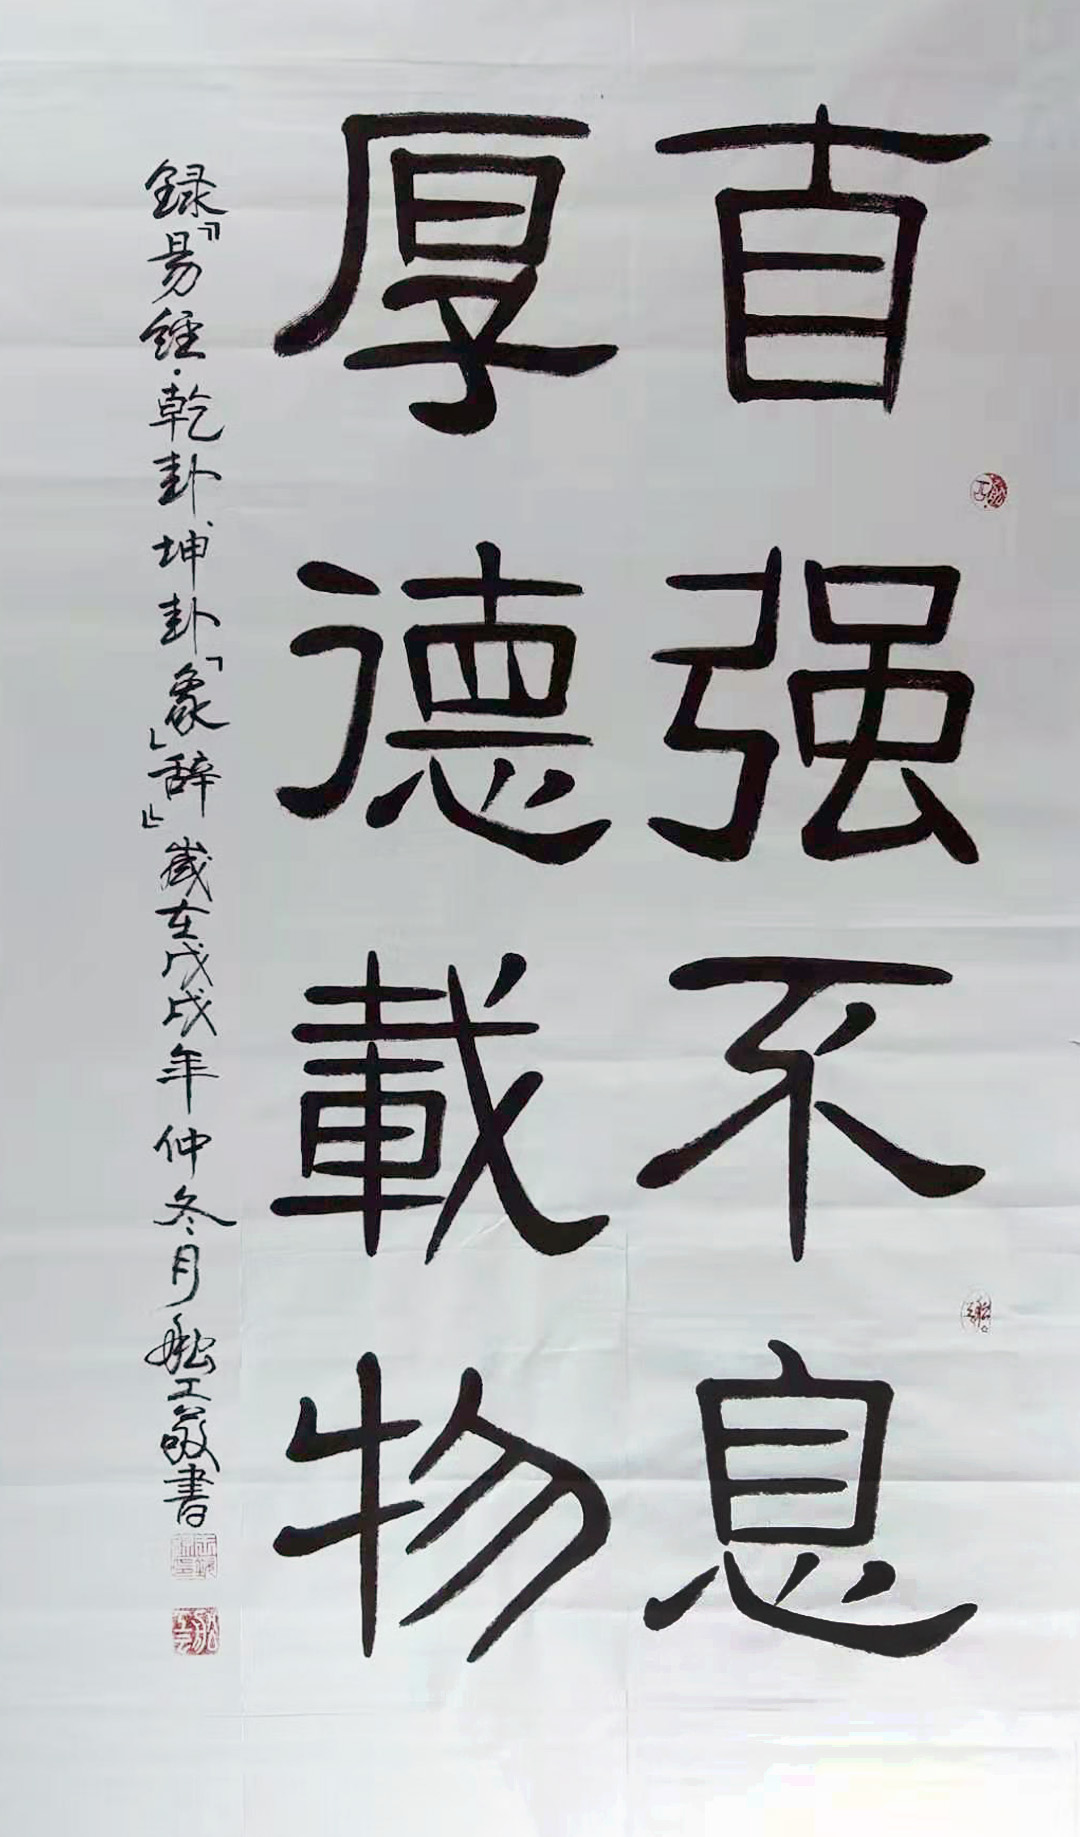 自强不息
厚德載物
録『易經·乾卦、坤卦「象」辞』歲在戊戌年仲冬月舩工敬書